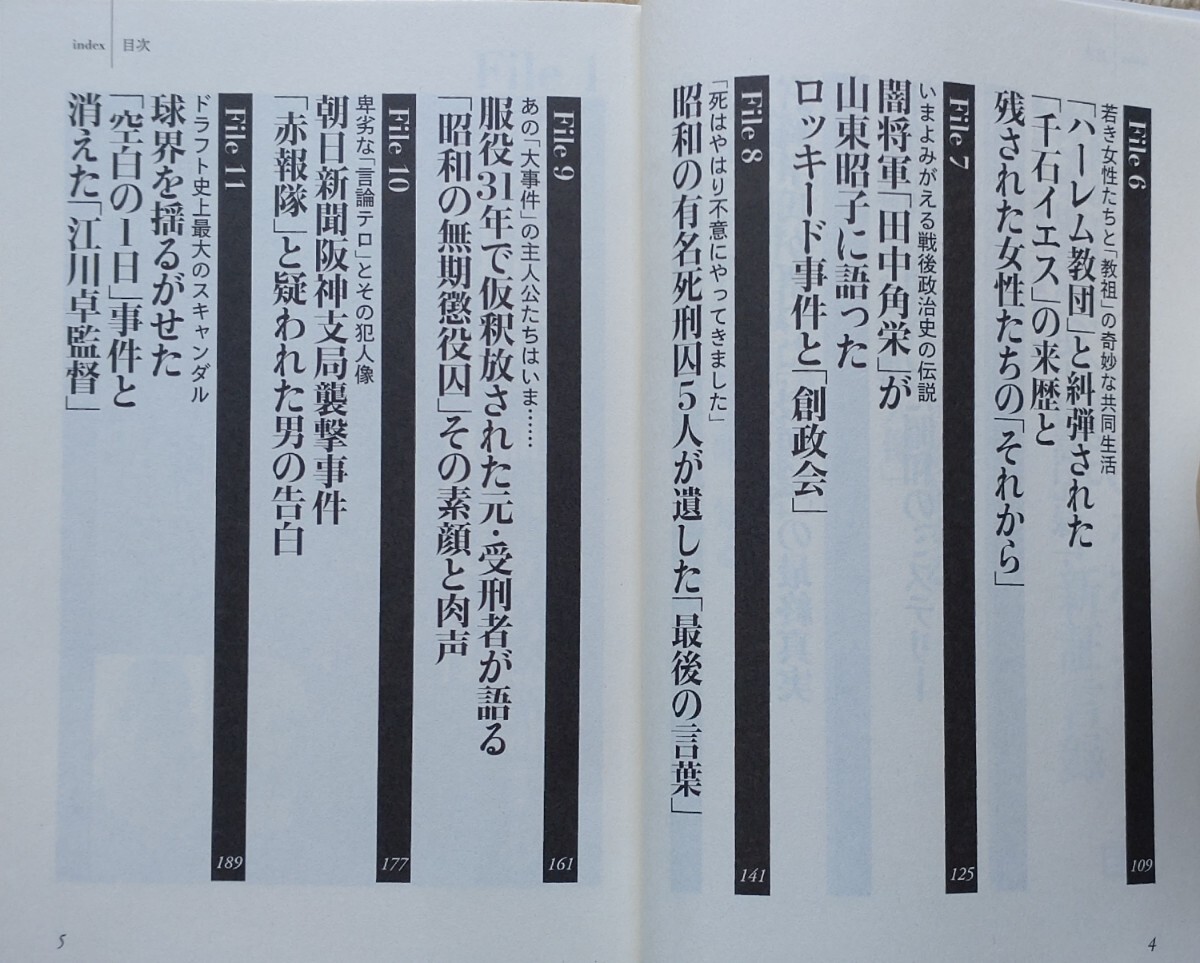 File 6
若き女性たちと「教祖」の奇妙な共同生活
「ハーレム教団」と糾弾された
「千石イエス」の来歴と
残された女性たちの「それから」
109
File 7
いまよみがえる戦後政治史の伝説
闇将軍「田中角栄」が
山東昭子に語った
ロッキード事件と「創政会」
125
File 8
「死はやはり不意にやってきました」
昭和の有名死刑囚5人が遺した「最後の言葉」
141
4
index
目次
File 9
あの「大事件」の主人公たちはいま……
服役31年で仮釈放された元・受刑者が語る
「昭和の無期懲役囚」その素顔と肉声
161
File 10
卑劣な「言論テロ」とその犯人像
朝日新聞阪神支局襲撃事件
「赤報隊」と疑われた男の告白
177
File 11
ドラフト史上最大のスキャンダル
球界を揺るがせた
「空白の1日」事件と
消えた「江川卓監督」
189
5